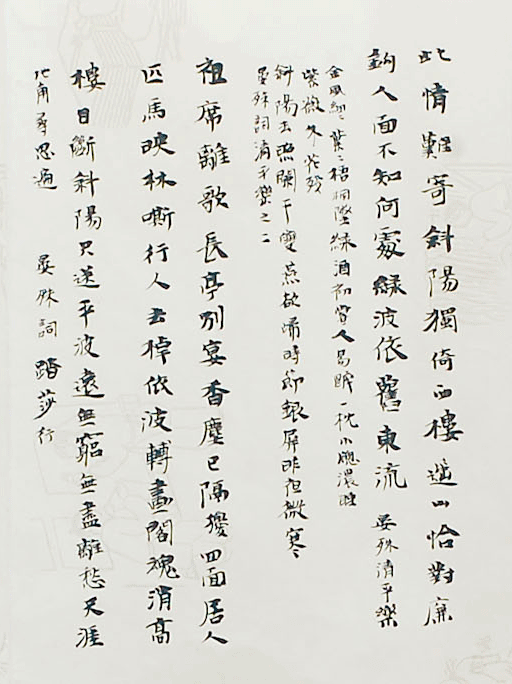 此情難寄斜陽獨倚西樓遥山恰對廉
鈎人面不知何處緑波依舊東流 晏殊清平樂
金風細〻葉〻梧桐墜緑酒初嘗人易醉一枕小窗濃睡
紫薇久花殘
斜陽去照闌干雙燕欲歸時節銀屏昨夜微寒
晏殊詞清平樂之二
祖席離歌長亭別宴香塵已隔猶回面居人
匹馬映林嘶行人去棹依波轉畫閣魂消高
樓目斷斜陽只送平波遠無窮無盡離愁天涯
地角尋思遍 晏殊詞 踏莎行